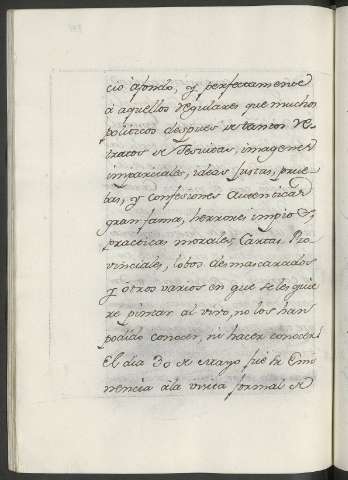 ció afondo, y perfectamente
á aquellos regulares que muchos
politicos despues de tantos re-
tratos de Jesuitas, imagenes
imparciales, ideas justas, prue-
bas, y confesiones autenticas
gran fama, herrores impios,
practicas morales, Cartas Pro-
vinciales, lobos desmascarados
y otros varios en que seles quie
re pintar al vivo, no los han
podido conocer, ni hacer conocer.
El dia 30 de Mayo fué su Emi
nencia ála visita formal de